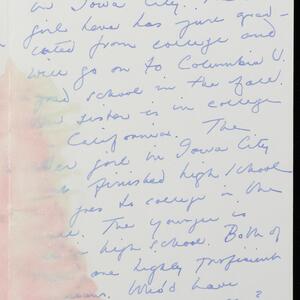 in Iowa City. The
girl here has just grad-
uated from college and
will go on to Columbia U.
grad school in the fall.
Her sister is in college
California. The
girl in Iowa City
finished high school
goes to college in the
The younger is
high school. Both of
one highly proficient
have